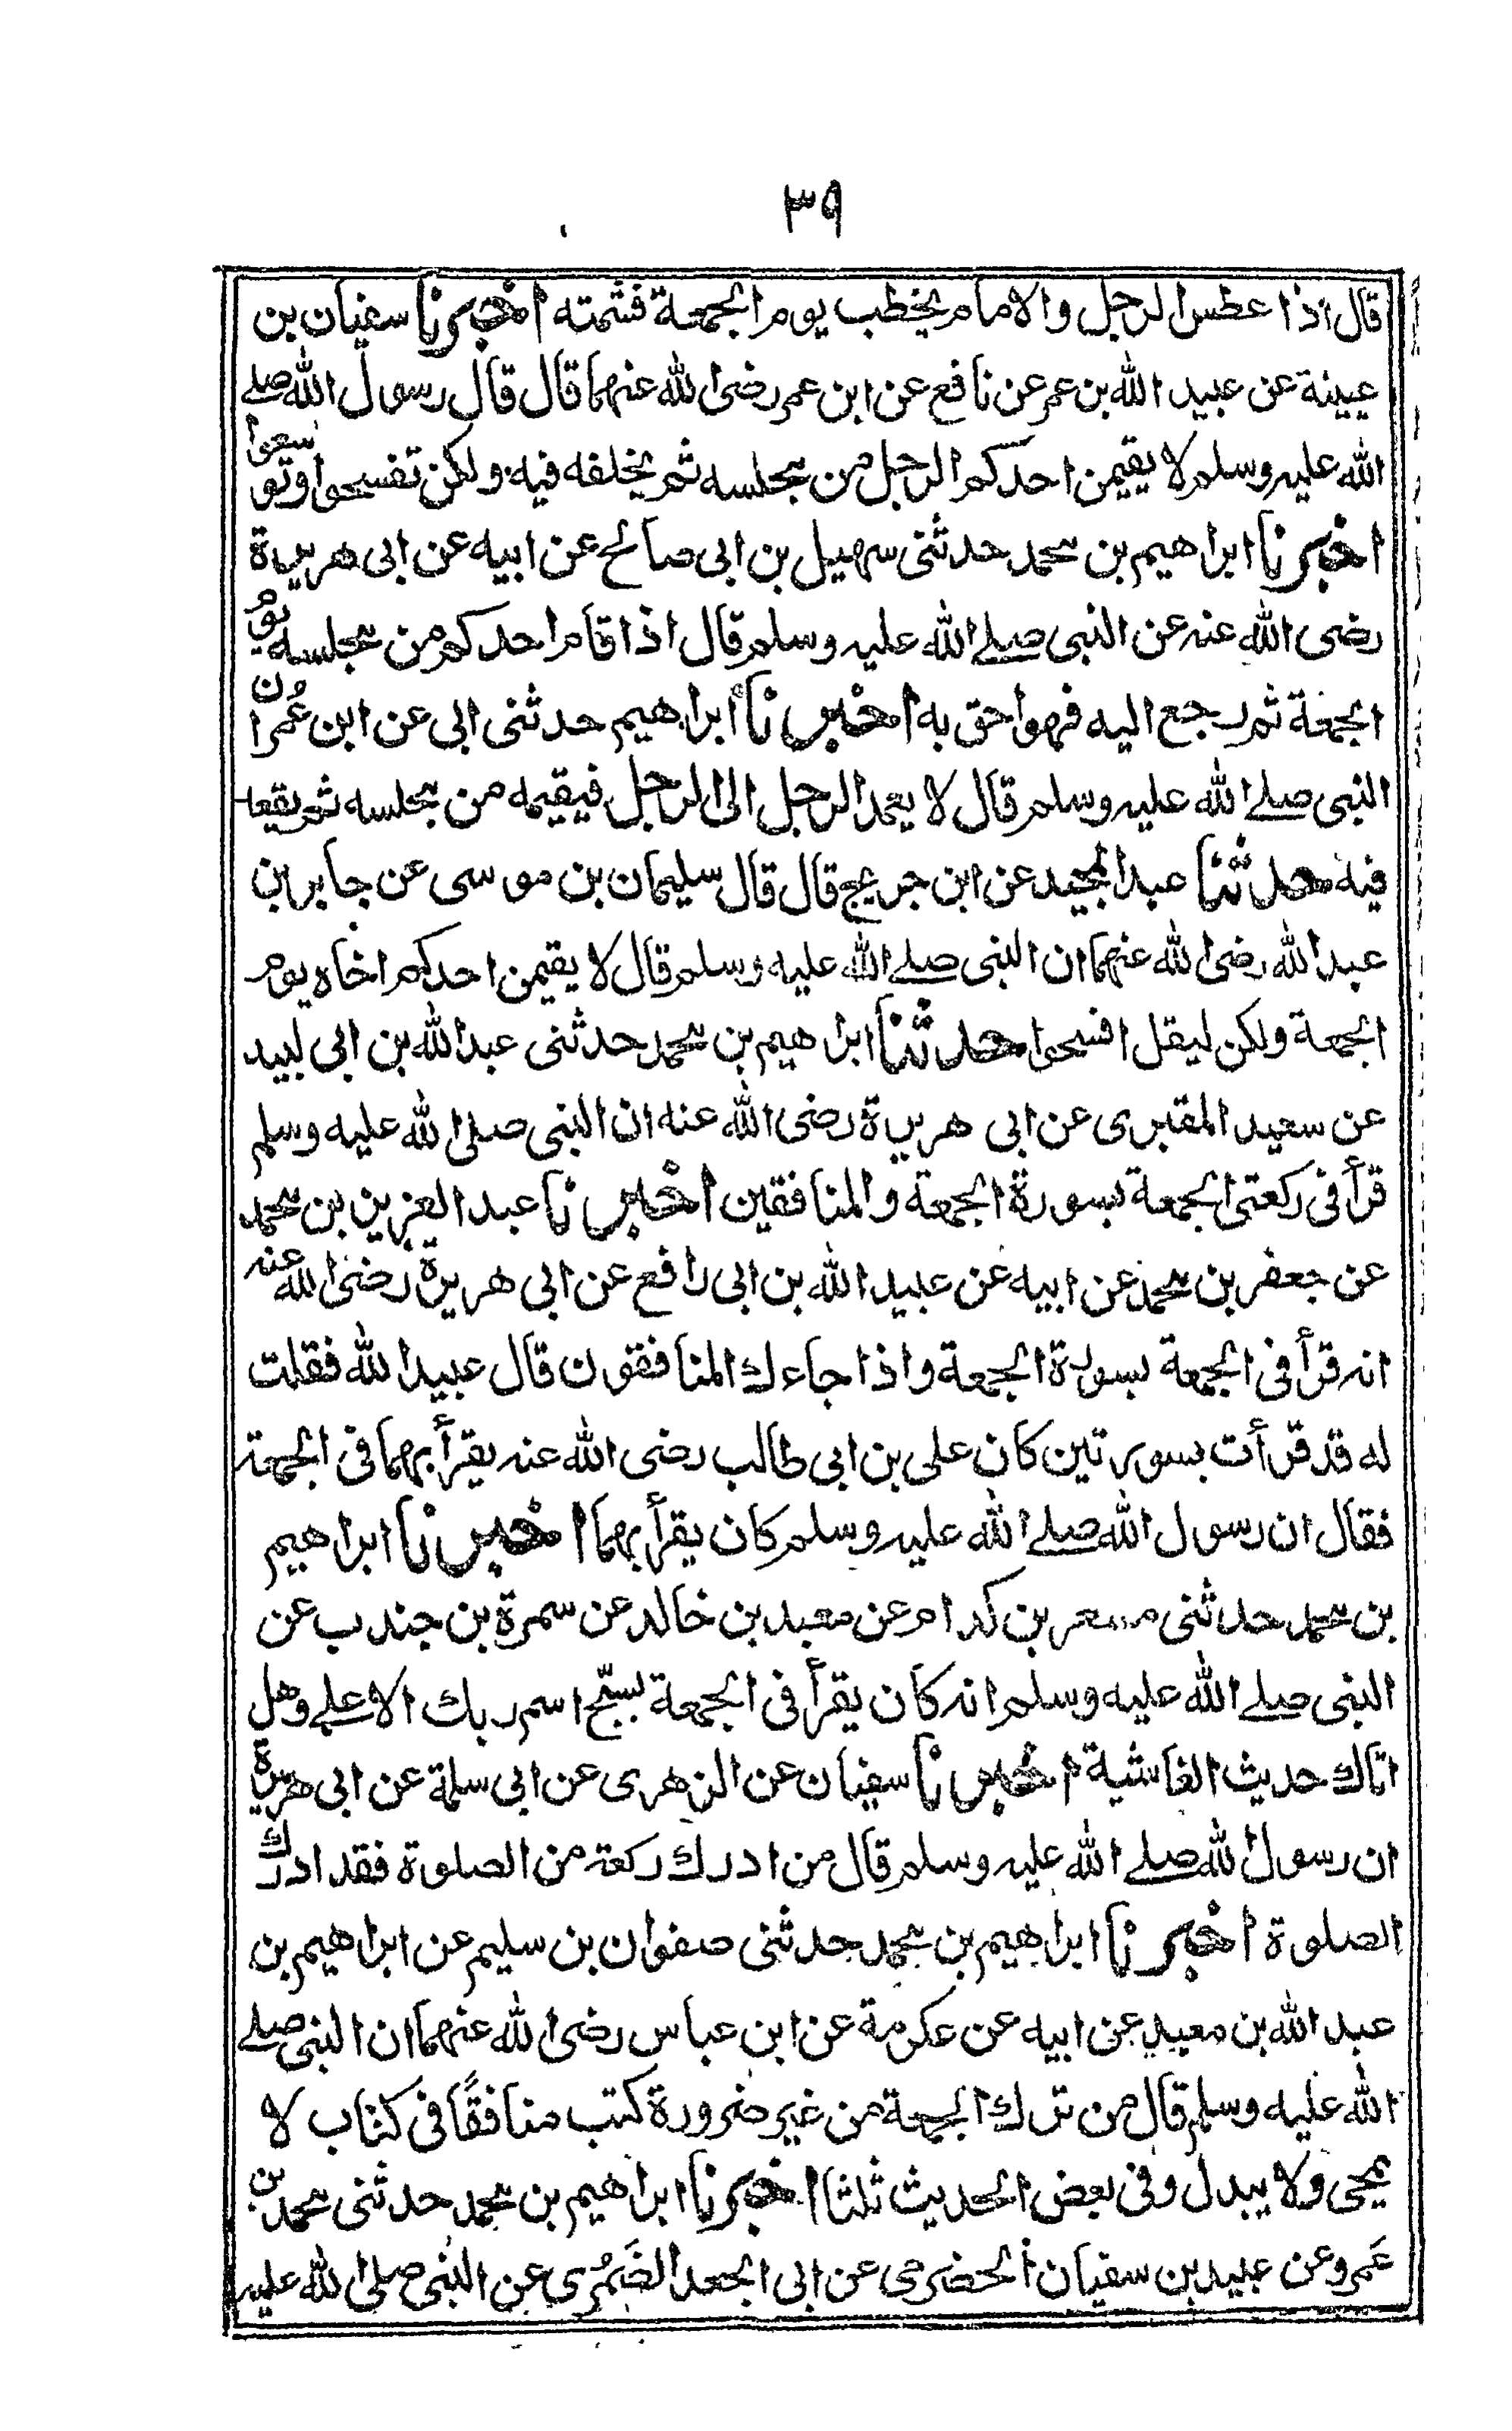 ٣٩
قال اذا عطس الرجل والامام يخطب يوم الجمعة فشمته اخبرنا سفيان بن
عيينة عن عبيد الله بن عمر عن نافع عن ابن عمر رضى الله عنهما قال قال رسول الله صلے
الله عليه وسلم لا يقيمن احدكم الرجل من مجلسه ثم يخلفه فيه ولكن تفسحوا وتوسعوا
اخبرنا ابراهيم بن محمد حدثنى سهيل بن ابى صالح عن ابيه عن ابى هريرة
رضى الله عنه عن النبى صلے الله عليه وسلم قال اذا قام احدكم من مجلسه يومَ
الجمعة ثم رجع اليه فهو احق به اخبرنا ابراهيم حدثنى ابى عن ابن عُمر ان
النبى صلے الله عليه وسلم قال لا يعمد الرجل الى الرجل فيقيمه من مجلسه ثم يقعد
فيه حدثنا عبد المجيد عن ابن جريج قال قال سليمان بن موسى عن جابر بن
عبد الله رضى الله عنهما ان النبى صلے الله عليه وسلم قال لا يقيمن احدكم اخاه يوم
الجمعة ولكن ليقل افسحوا حدثنا ابراهيم بن محمد حدثنى عبد الله بن ابى لبيد
عن سعيد المقبرى عن ابى هريرة رضى الله عنه ان النبى صلى الله عليه وسلم
قرأ فى ركعتى الجمعة بسورة الجمعة والمنافقين اخبرنا عبد العزيز بن محمد
عن جعفر بن محمد عن ابيه عن عبيد الله بن ابى رافع عن ابى هريرة رضى الله عنه
انه قرأ فى الجمعة بسورة الجمعة واذا جاءك المنافقون قال عبيد الله فقلت
له قد قرأت بسورتين كان على بن ابى طالب رضى الله عنه يقرأ بهما فى الجمعة
فقال ان رسول الله صلے الله عليه وسلم كان يقرأ بهما اخبرنا ابراهيم
بن محمد حدثنى مسعر بن كدام عن معبد بن خالد عن سمرة بن جندب عن
النبى صلے الله عليه وسلم انه كان يقرأ فى الجمعة بسبّح اسم ربك الاعلے وهل
اتاك حديث الغاشية اخبرنا سفيان عن الزهرى عن ابى سلمة عن ابى هريرة
ان رسول الله صلے الله عليه وسلم قال من ادرك ركعة من الصلوة فقد ادرك
الصلوة اخبرنا ابراهيم بن محمد حدثنى صفوان بن سليم عن ابراهيم بن
عبد الله بن معبد عن ابيه عن عكرمة عن ابن عباس رضى الله عنهما ان النبى صلے
الله عليه وسلم قال من ترك الجمعة من غير ضرورة كتب منافقًا فى كتاب لا
يمحى ولا يبدل وفى بعض الحديث ثلثا اخبرنا ابراهيم بن محمد حدثنى محمد بن
عَمرو عن عبيد بن سفيان الحضرمى عن ابى الجعد الضَمُرى عن النبى صلى الله عليه